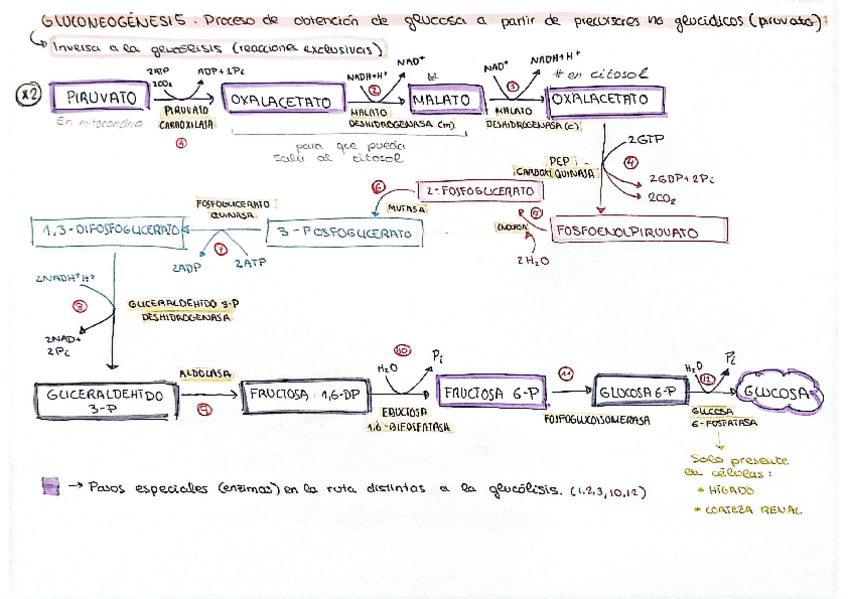 GLUCONEOGÉNESIS. Proceso de obtención de glucosa a partir de precursores no glucídicos (piruvato):
Inversa a la glucólisis (reacciones exclusivas)
x2
PIRUVATO
En mitocondria
2ATP
2CO2
ADP+2Pi
PIRUVATO
CARBOXILASA
1
OXALACETATO
NADH+H+
NAD+
2
MALATO
DESHIDROGENASA (m)
para que pueda
salir al citosol
MALATO
NAD+
NADH+H+
3
MALATO
DESHIDROGENASA (c)
# en citosol
OXALACETATO
2GTP
4
PEP
CARBOXIQUINASA
2GDP+2Pi
2CO2
FOSFOENOLPIRUVATO
5
ENOLASA
2H2O
2-FOSFOGLICERATO
6
MUTASA
3-FOSFOGLICERATO
FOSFOGLICERATO
QUINASA
7
2ATP
2ADP
1,3-DIFOSFOGLICERATO
2NADH+H+
GLICERALDEHÍDO 3-P
DESHIDROGENASA
2NAD+
2Pi
GLICERALDEHÍDO
3-P
ALDOLASA
9
FRUCTOSA 1,6-DP
H2O
10
Pi
FRUCTOSA
1,6-DIFOSFATASA
FRUCTOSA 6-P
11
FOSFOGLUCOISOMERASA
GLUCOSA 6-P
H2O
12
Pi
GLUCOSA
6-FOSFATASA
GLUCOSA
Solo presente
en células:
* HÍGADO
* CORTEZA RENAL
→ Pasos especiales (enzimas) en la ruta distintas a la glucólisis. (1,2,3,10,12)